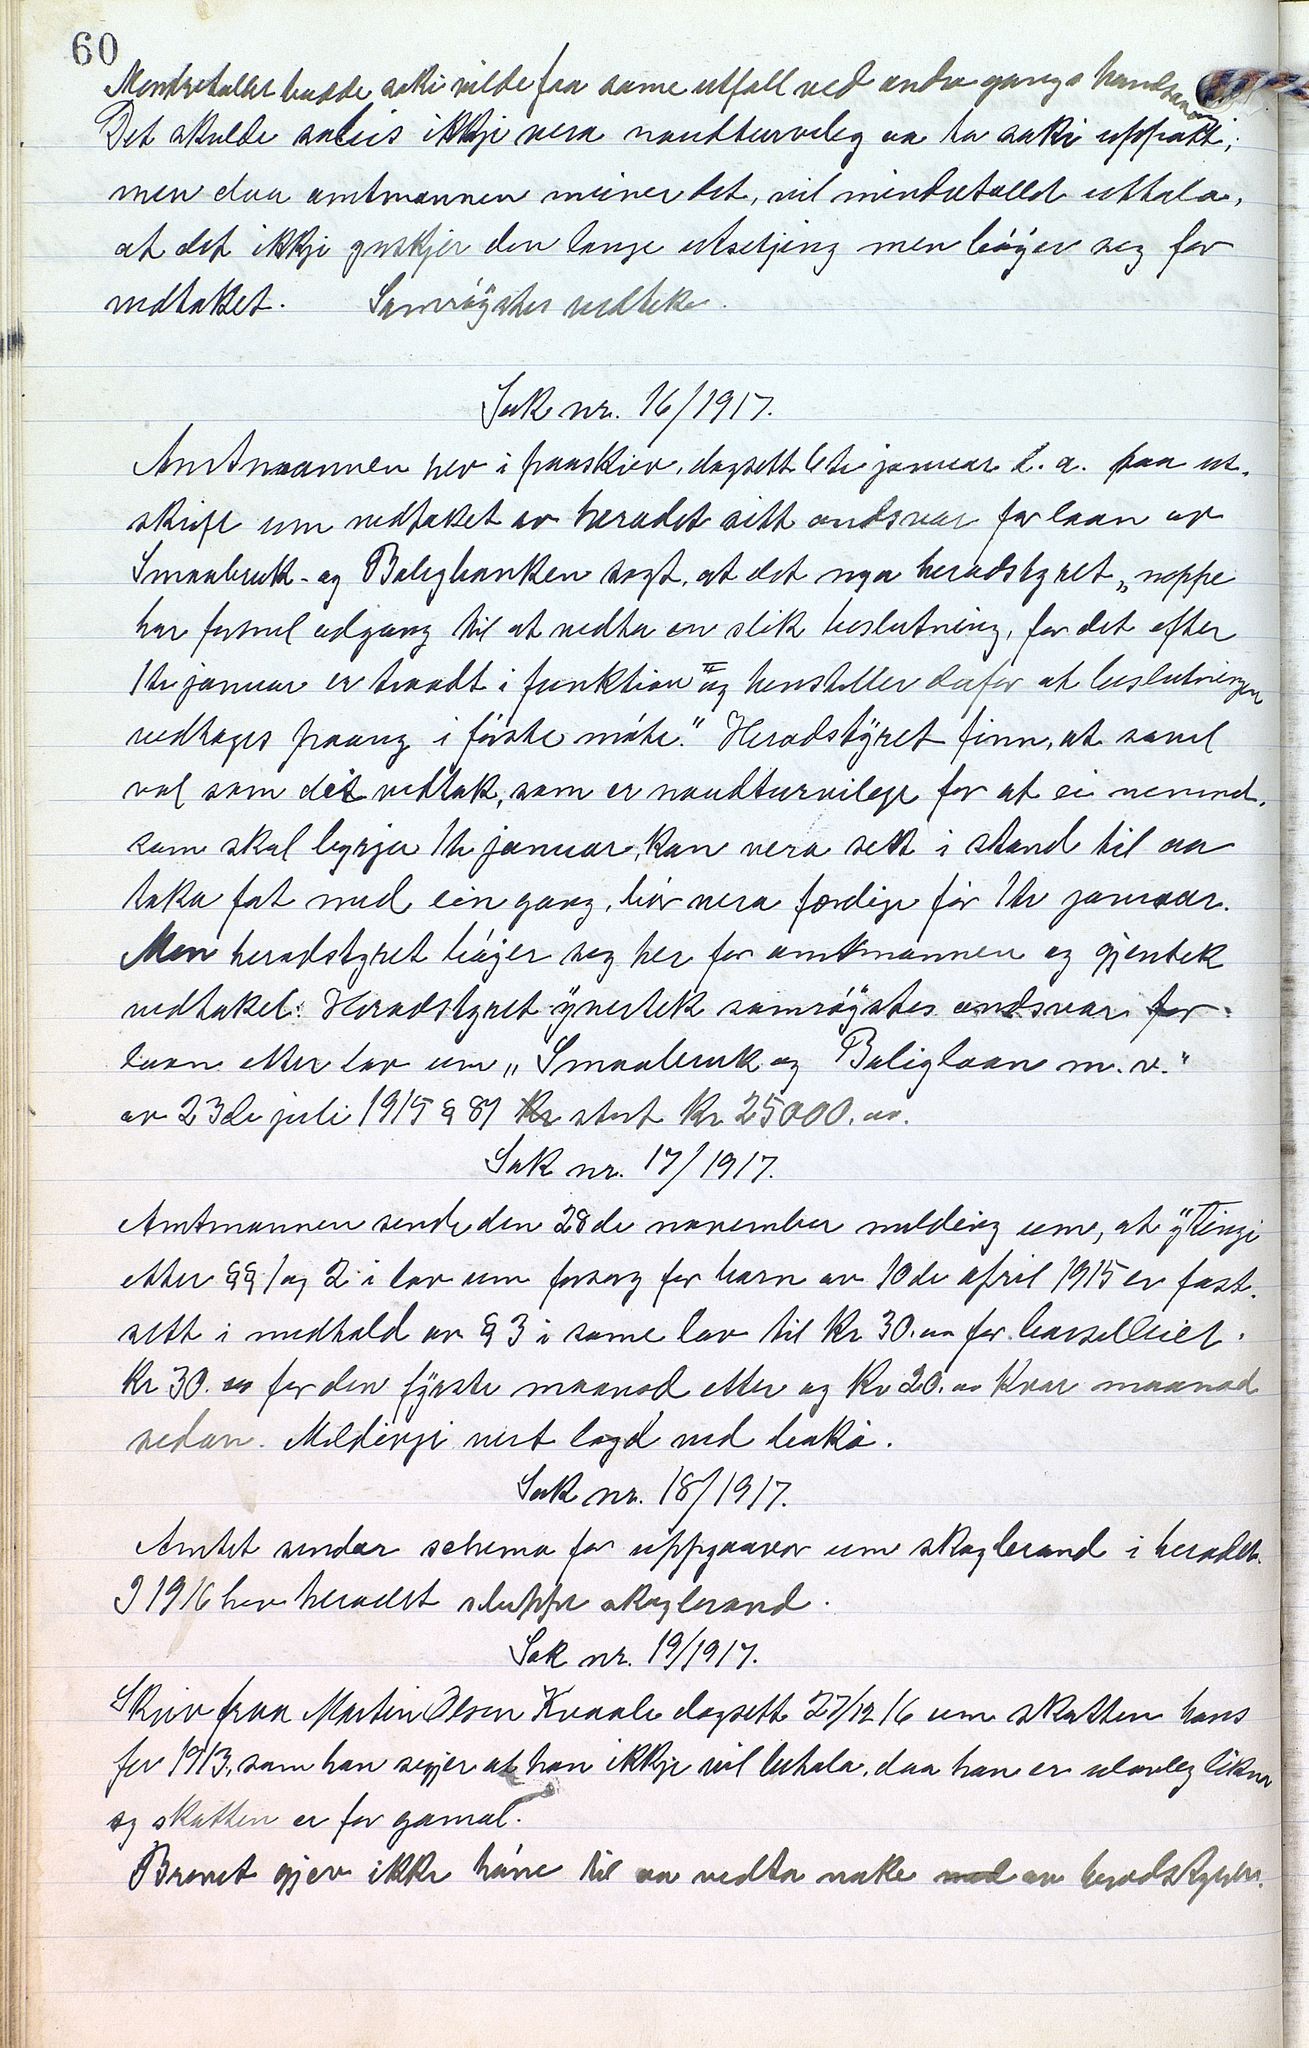 60
Mindretallet hadde saki vilde faa same utfall ved andre gangs handsaming
Det skulde soleis ikkje vera naudturveleg aa ta saki uppatt;
men daa amtmannen meiner det, vil mindretallet uttala,
at det ikkje ynskjer den lange utsetjing men bøyer seg for
vedtaket. Samrøystes vedteke.
Sak nr. 16/1917.
Amtmannen hev i paaskriv, dagsett 6te januar d. a. paa ut-
skrift um vedtaket av heradet sitt andsvar for laan av
Smaabruk- og Boligbanken sagt, at det nya heradstyret „neppe
har formel adgang til at vedta en slik beslutning, før det efter
1te januar er traadt i funktion og henstiller derfor at beslutningen
vedtages paany i første møte." Heradstyret finn, at saavel
val som det vedtak, som er naudturvilege for at ei nemnd,
som skal byrja 1te januar, kan vera sett i stand til aa
taka fat med ein gang, bør vera færdige før 1te januar.
Men heradstyret bøyer seg her for amtmannen og gjentek
vedtaket: Heradstyret yvertek samrøystes andsvar for
laan etter lov um „Smaabruk og Boliglaan m. v."
av 23de juli 1915 § 87 stort Kr 25000.00.
Sak nr. 17/1917.
Amtmannen sende den 28de november melding um, at ytingi
etter §§ 1 og 2 i lov um forsorg for barn av 10de april 1915 er fast-
sett i medhald av § 3 i same lov til Kr 30.00 for barselleiet.
Kr 30.00 for den fyrste maanad etter og Kr 20.00 kvar maanad
sedan. Meldingi vert lagd ved boki.
Sak nr. 18/1917.
Amtet sender schema for uppgaavor um skogbrand i heradet.
I 1916 hev heradet sluppe skogbrand.
Sak nr. 19/1917.
Skriv fraa Martin Olsen Kvaale dagsett 27/12 16 um skatten hans
for 1913, som han segjer at han ikkje vil betala, daa han er ulovleg likna
og skatten er for gamal.
Brevet gjev ikkje høve til aa vedta noke av heradstyret.